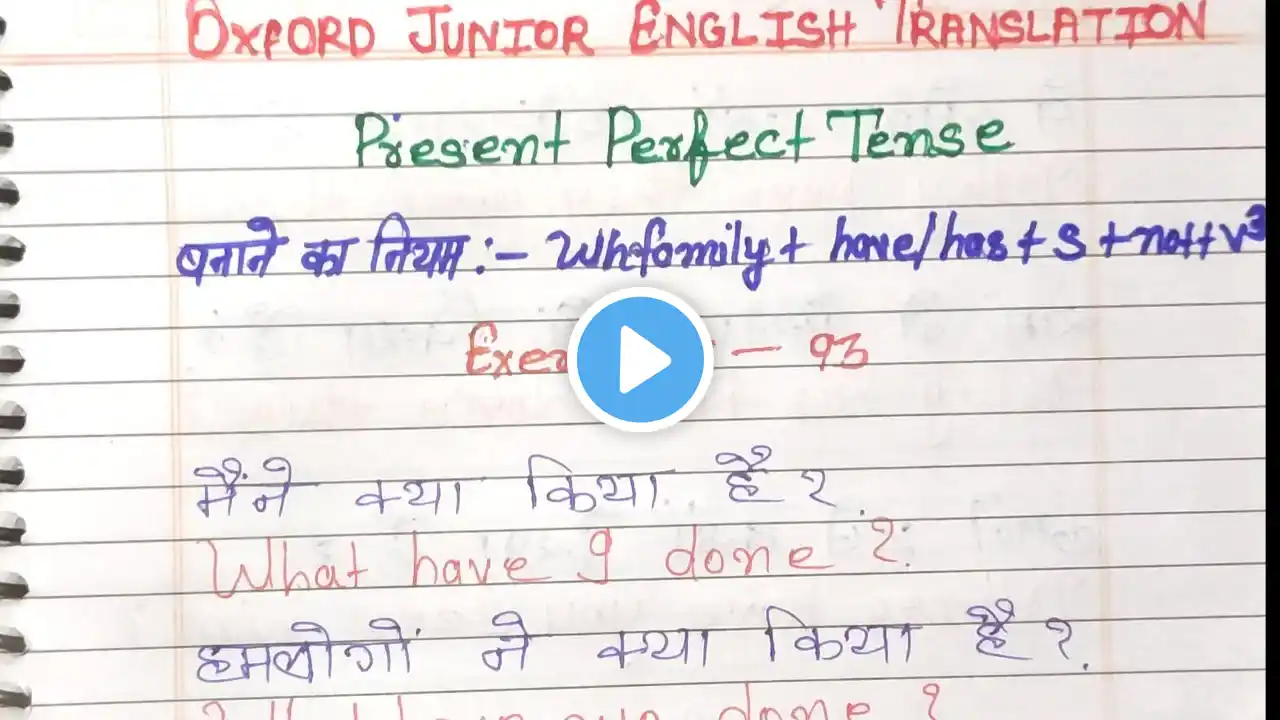 OXFORD JUNIOR ENGLISH TRANSLATION
Present Perfect Tense
बनाने का नियम :- Whfamily + have/has + S + not + V³
93
मैंने क्या किया है ?
What have I done ?
हमलोगों ने क्या किया है ?
done ?